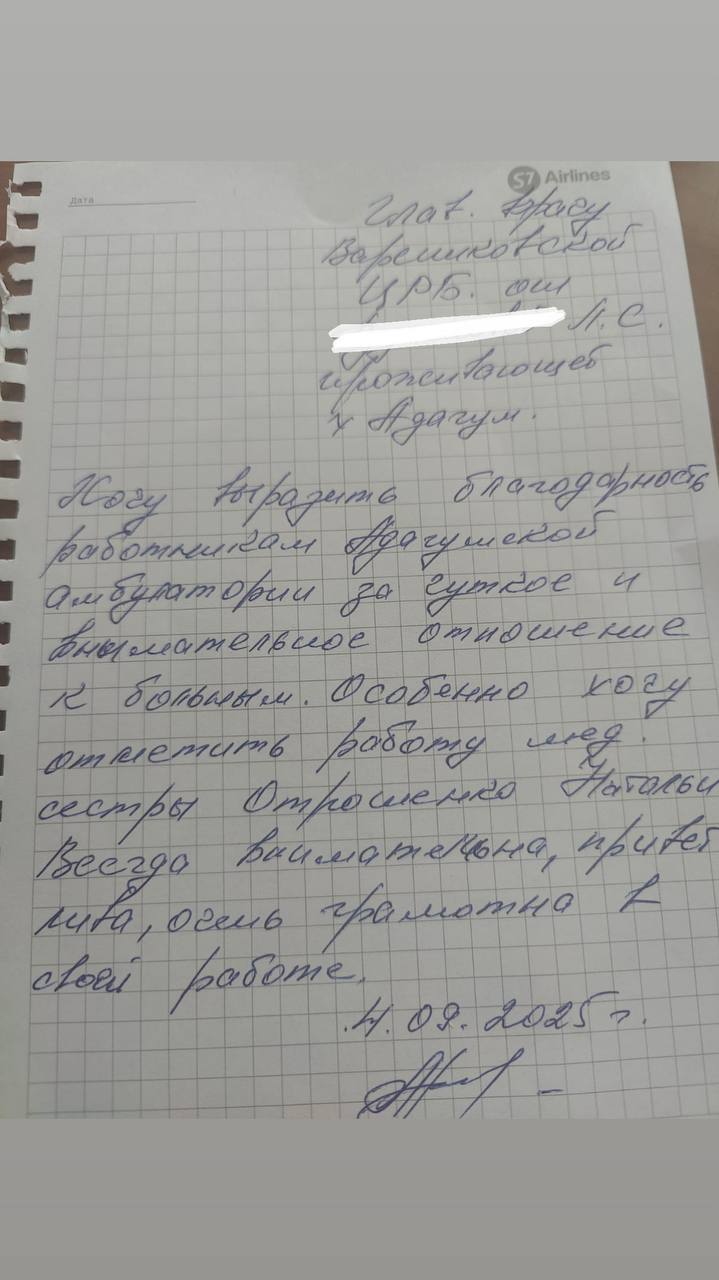 Дата
S7 Airlines
Глав. врачу
Варениковской
ЦРБ. от
Л. С.
проживающей
х Адагум.
Хочу выразить благодарность
работникам Адагумской
амбулатории за чуткое и
внымательное отношение
к больным. Особенно хочу
отметить работу мед.
сестры Отрошенко Натальи
Всегда внимательна, привет
лива, очень грамотна в
своей работе.
4. 09. 2025 г.